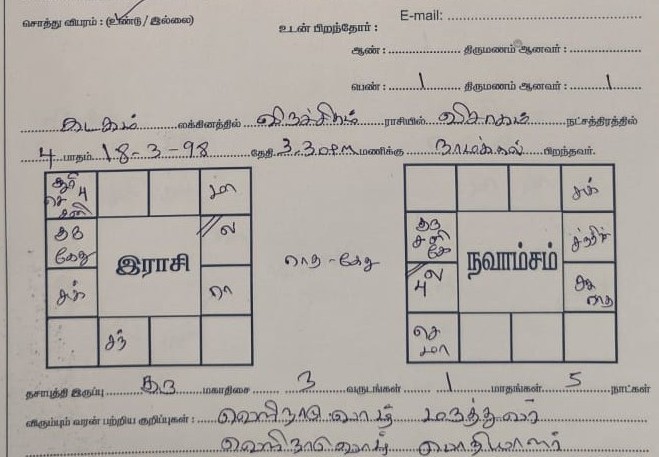 சொத்து விபரம் : (உண்டு / இல்லை)
E-mail:
உடன் பிறந்தோர் :
ஆண் : திருமணம் ஆனவர் :
பெண் : 1 திருமணம் ஆனவர் : 1
கடகம் லக்கினத்தில் விருச்சிகம் ராசியில் விசாகம் நட்சத்திரத்தில்
4 பாதம் 18-3-98 தேதி 3.30PM மணிக்கு நாமக்கல் பிறந்தவர்.
செ 4 மா சுக்
சனி
குரு ல குரு
கேது சனி
இராசி நவாம்சம்
கே
சுக் ரா ல
4
சந் செ
மா
தசாபுத்தி இருப்பு குரு மகாதிசை 3 வருடங்கள் 1 மாதங்கள் 5 நாட்கள்
விரும்பும் வரன் பற்றிய குறிப்புகள் : வெளிநாடு மருத்துவர்